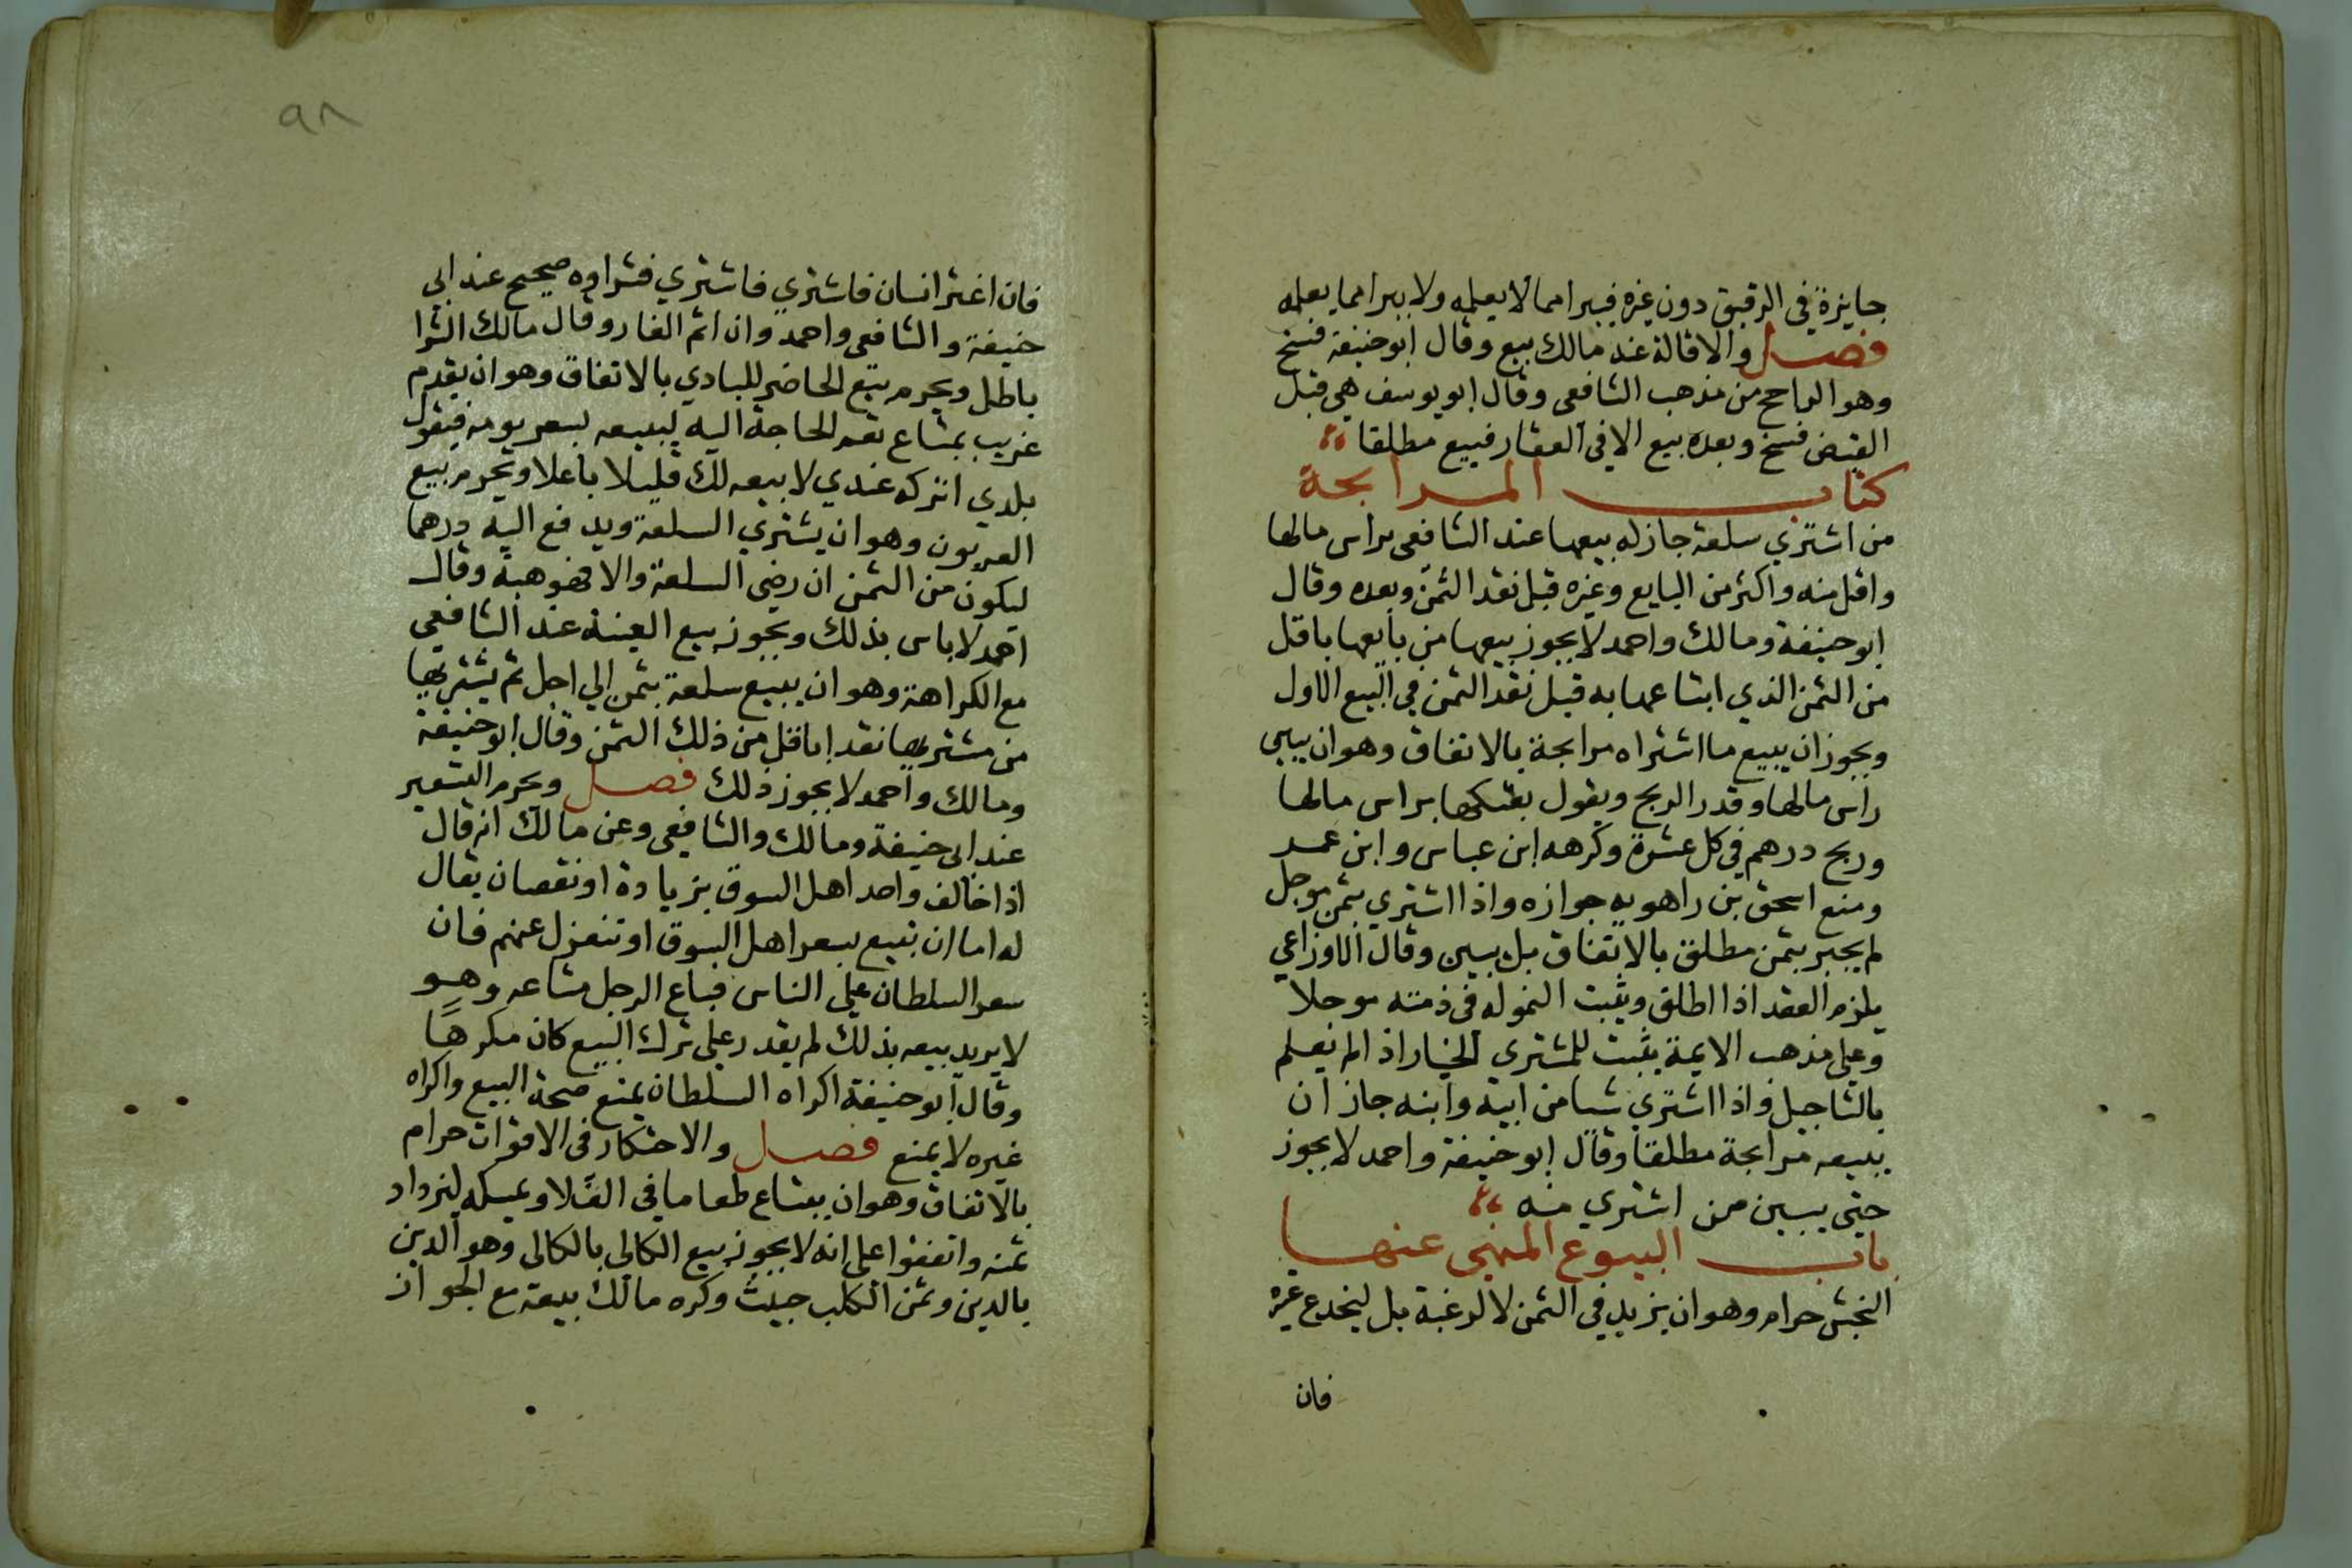 جايزة في الرقيق دون غيره فيبرا مما لا يعلمه ولا يبرا مما يعلمه
فصل والاقالة عند مالك بيع وقال ابو حنيفة فسخ
وهو الراجح من مذهب الشافعى وقال ابو يوسف هي قبل
القبض فسخ وبعده بيع الا في العقار فبيع مطلقا
كتاب المرابحة
من اشتري سلعة جاز له بيعها عند الشافعى براس مالها
واقل منه واكثر من البايع وغيره قبل نقد الثمن وبعده وقال
ابو حنيفة ومالك واحمد لا يجوز بيعها من بايعها باقل
من الثمن الذي ابتاعها به قبل نقد الثمن في البيع الاول
ويجوز ان يبيع ما اشتراه مرابحة بالاتفاق وهو ان يبين
راس مالها وقدر الربح ويقول بعتكها براس مالها
وربح درهم في كل عشرة وكرهه ابن عباس وابن عمر
ومنع اسحق بن راهويه جوازه واذا اشتري بثمن موجل
لم يجبر بثمن مطلق بالاتفاق بل يبين وقال الاوزاعي
يلزم العقد اذا اطلق ويثبت الثمن له في ذمته موجلا
وعلي مذهب الايمة يثبت للمشتري الخيار اذا لم يعلم
بالتاجيل واذا اشتري شيا من ابيه وابنه جاز ان
يبيعه مرابحة مطلقا وقال ابو حنيفة واحمد لا يجوز
حتي يبين ممن اشتري منه
باب البيوع المنهي عنها
النجش حرام وهو ان يزيد في الثمن لا لرغبة بل ليخدع غيره
فان
٩٨
فان اغتر انسان فاشتري فاشتري فشراوه صحيح عند ابي
حنيفة والشافعى واحمد وان اثم الغار وقال مالك الشرا
باطل ويحرم بيع الحاضر للبادي بالاتفاق وهو ان يقدم
غريب بمتاع تعم الحاجة اليه ليبيعه بسعر يومه فيقول
بلدي اتركه عندي لابيعه لك قليلا باعلا ويحرم بيع
العربون وهو ان يشتري السلعة ويدفع اليه درهما
ليكون من الثمن ان رضي السلعة والا فهو هبة وقال
احمد لا باس بذلك ويجوز بيع العينة عند الشافعي
مع الكراهة وهو ان يبيع سلعة بثمن الي اجل ثم يشتريها
من مشتريها نقدا باقل من ذلك الثمن وقال ابو حنيفة
ومالك واحمد لا يجوز ذلك فصل ويحرم التسعير
عند ابي حنيفة ومالك والشافعي وعن مالك انه قال
اذا خالف واحد اهل السوق بزيادة او نقصان يقال
له اما ان تبيع بسعر اهل السوق او تنعزل عنهم فان
سعر السلطان علي الناس فباع الرجل متاعه وهو
لا يريد بيعه بذلك لم يقدر علي ترك البيع كان مكرهًا
وقال ابو حنيفة اكراه السلطان يمنع صحة البيع واكراه
غيره لا يمنع فصل والاحتكار في الاقوات حرام
بالاتفاق وهو ان يبتاع طعاما في الغلا ويمسكه ليزداد
ثمنه واتفقوا علي انه لا يجوز بيع الكالى بالكالى وهو الدين
بالدين وثمن الكلب خبيث وكره مالك بيعه مع الجواز